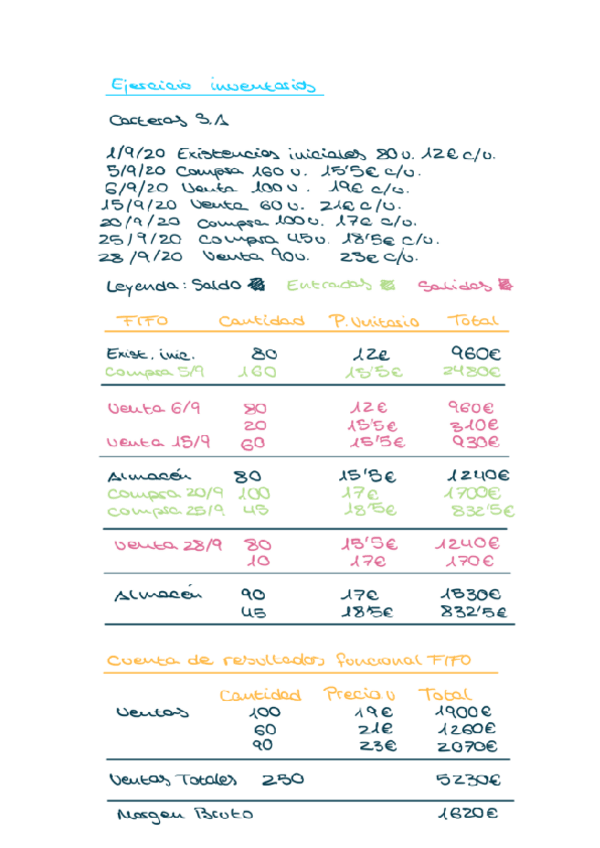 Ejercicio inventarios
Carteras S.A
1/9/20 Existencias iniciales 80 u. 12€ c/u.
5/9/20 Compra 160 u. 15'5€ c/u.
6/9/20 Venta 100 u. 19€ c/u.
15/9/20 Venta 60 u. 21€ c/u.
20/9/20 compra 100 u. 17€ c/u.
25/9/20 compra 45 u. 18'5€ c/u.
28/9/20 Venta 90 u. 23€ c/u.
Leyenda: Saldo Entradas Salidas
FIFO Cantidad P. Unitario Total
Exist. inic. 80 12€ 960€
Compra 5/9 160 15'5€ 2480€
Venta 6/9 80 12€ 960€
20 15'5€ 310€
Venta 15/9 60 15'5€ 930€
Almacén 80 15'5€ 1240€
Compra 20/9 100 17€ 1700€
Compra 25/9 45 18'5€ 832'5€
Venta 28/9 80 15'5€ 1240€
10 17€ 170€
Almacén 90 17€ 1530€
45 18'5€ 832'5€
Cuenta de resultados funcional FIFO
Cantidad Precio u Total
Ventas 100 19€ 1900€
60 21€ 1260€
90 23€ 2070€
Ventas Totales 250 5230€
Margen Bruto 1620€